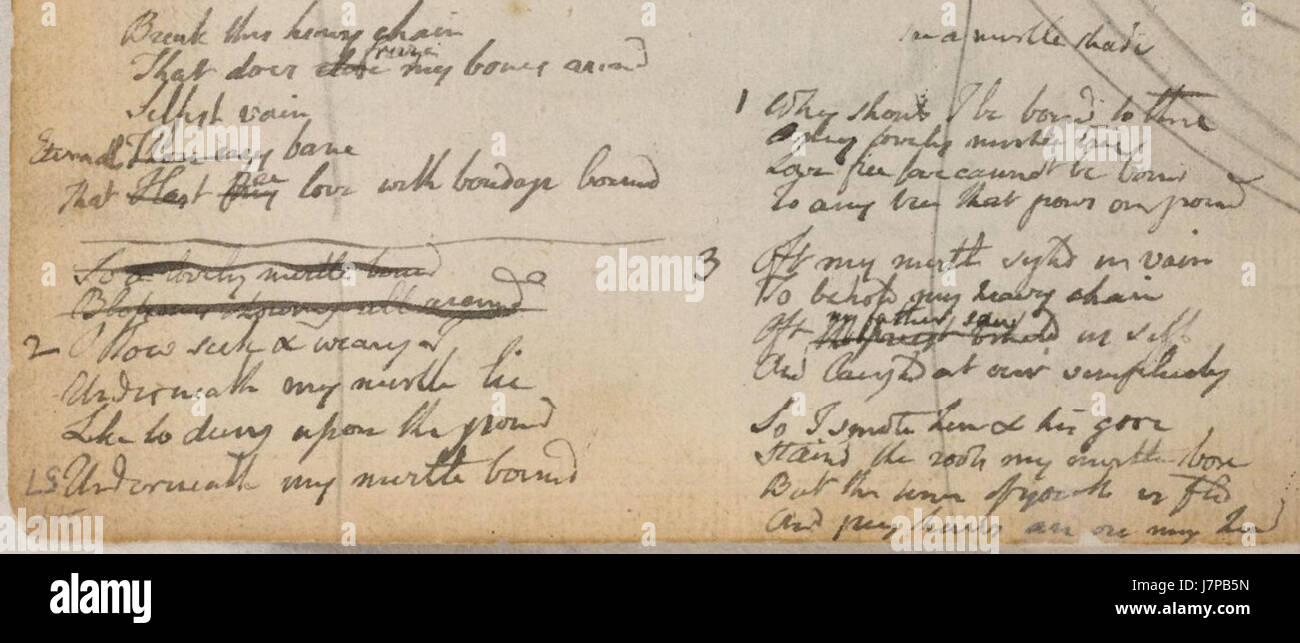 Break this heavy chain
freeze
That does close my bones around
Selfish vain
Eternal Thou my bane
That Hast free love with bondage bound
So a lovely mirtle bound
Blossoms showring all around
2 O how sick & weary I
Underneath my mirtle lie
Like to dung upon the ground
Underneath my mirtle bound
In a mirtle shade
1 Why should I be bound to thee
O my lovely mirtle tree
Love free love cannot be bound
To any tree that grows on ground
3 Oft my mirtle sighd in vain
To behold my heavy chain
my father saw
Oft us sigh
And laughd at our simplicity
So I smote him & his gore
Staind the roots my mirtle bore
But the time of youth is fled
And grey hairs are on my head
alamy
www.alamy.com
Image ID: J7PB5N